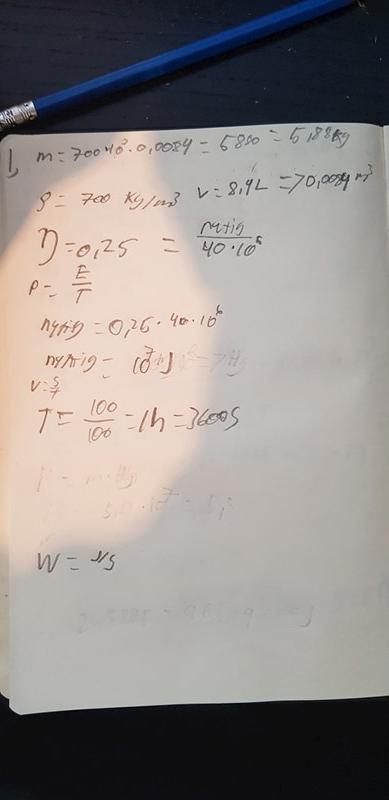 1, m = 700·10³·0,0084 = 5880 = 5,88 kg
ρ = 700 kg/m³ V = 8,4L => 0,0084 m³
η = 0,25 = nyttig / 40·10⁶
P = E/T
nyttig = 0,25·40·10⁶
nyttig = 10⁷ J
v = s/t
T = 100/100 = 1h = 3600s